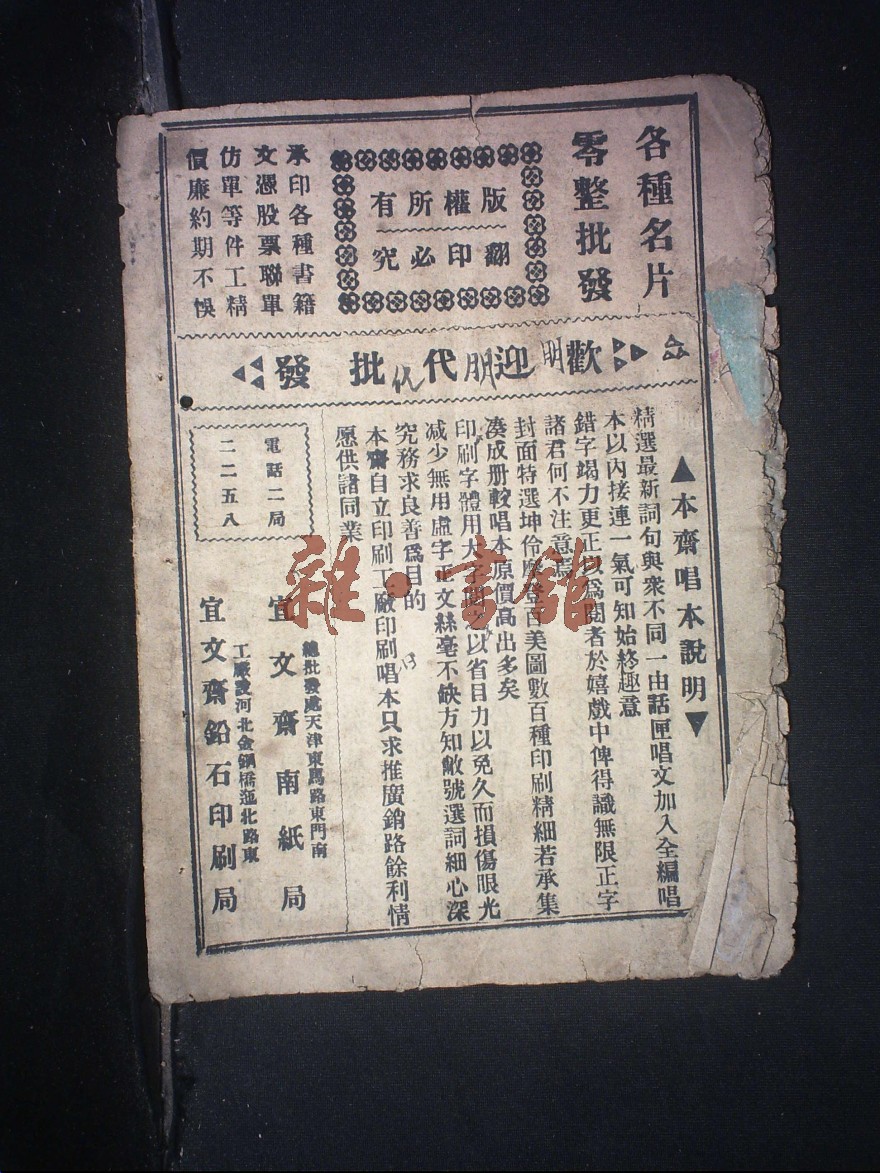 各種名片
零整批發
版權所有
翻印必究
承印各種書籍
文憑股票聯單
仿單等件工精
價廉約期不悞
歡明迎明代代批發
▲本齋唱本說明▼
精選最新詞句與衆不同一由話匣唱文加入全編唱
本以內接連一氣可知始終趣意
錯字竭力更正以爲閱者於嬉戲中俾得識無限正字
諸君何不注意焉
封面特選坤伶 登百美圖數百種印刷精細若承集
湊成册較唱本原價高出多矣
印刷字體用大字 以省目力以免久而損傷眼光
减少無用虛字正文絲毫不缺方知敝號選詞細心深
究務求良善爲目的
本齋自立印刷工廠印刷唱本只求推廣銷路餘利情
愿供諸同業
總批發處天津東馬路東門南
宜文齋南紙局
工廠設河北金鋼橋迤北路東
宜文齋鉛石印刷局
電話二局
二二五八
雜·書館